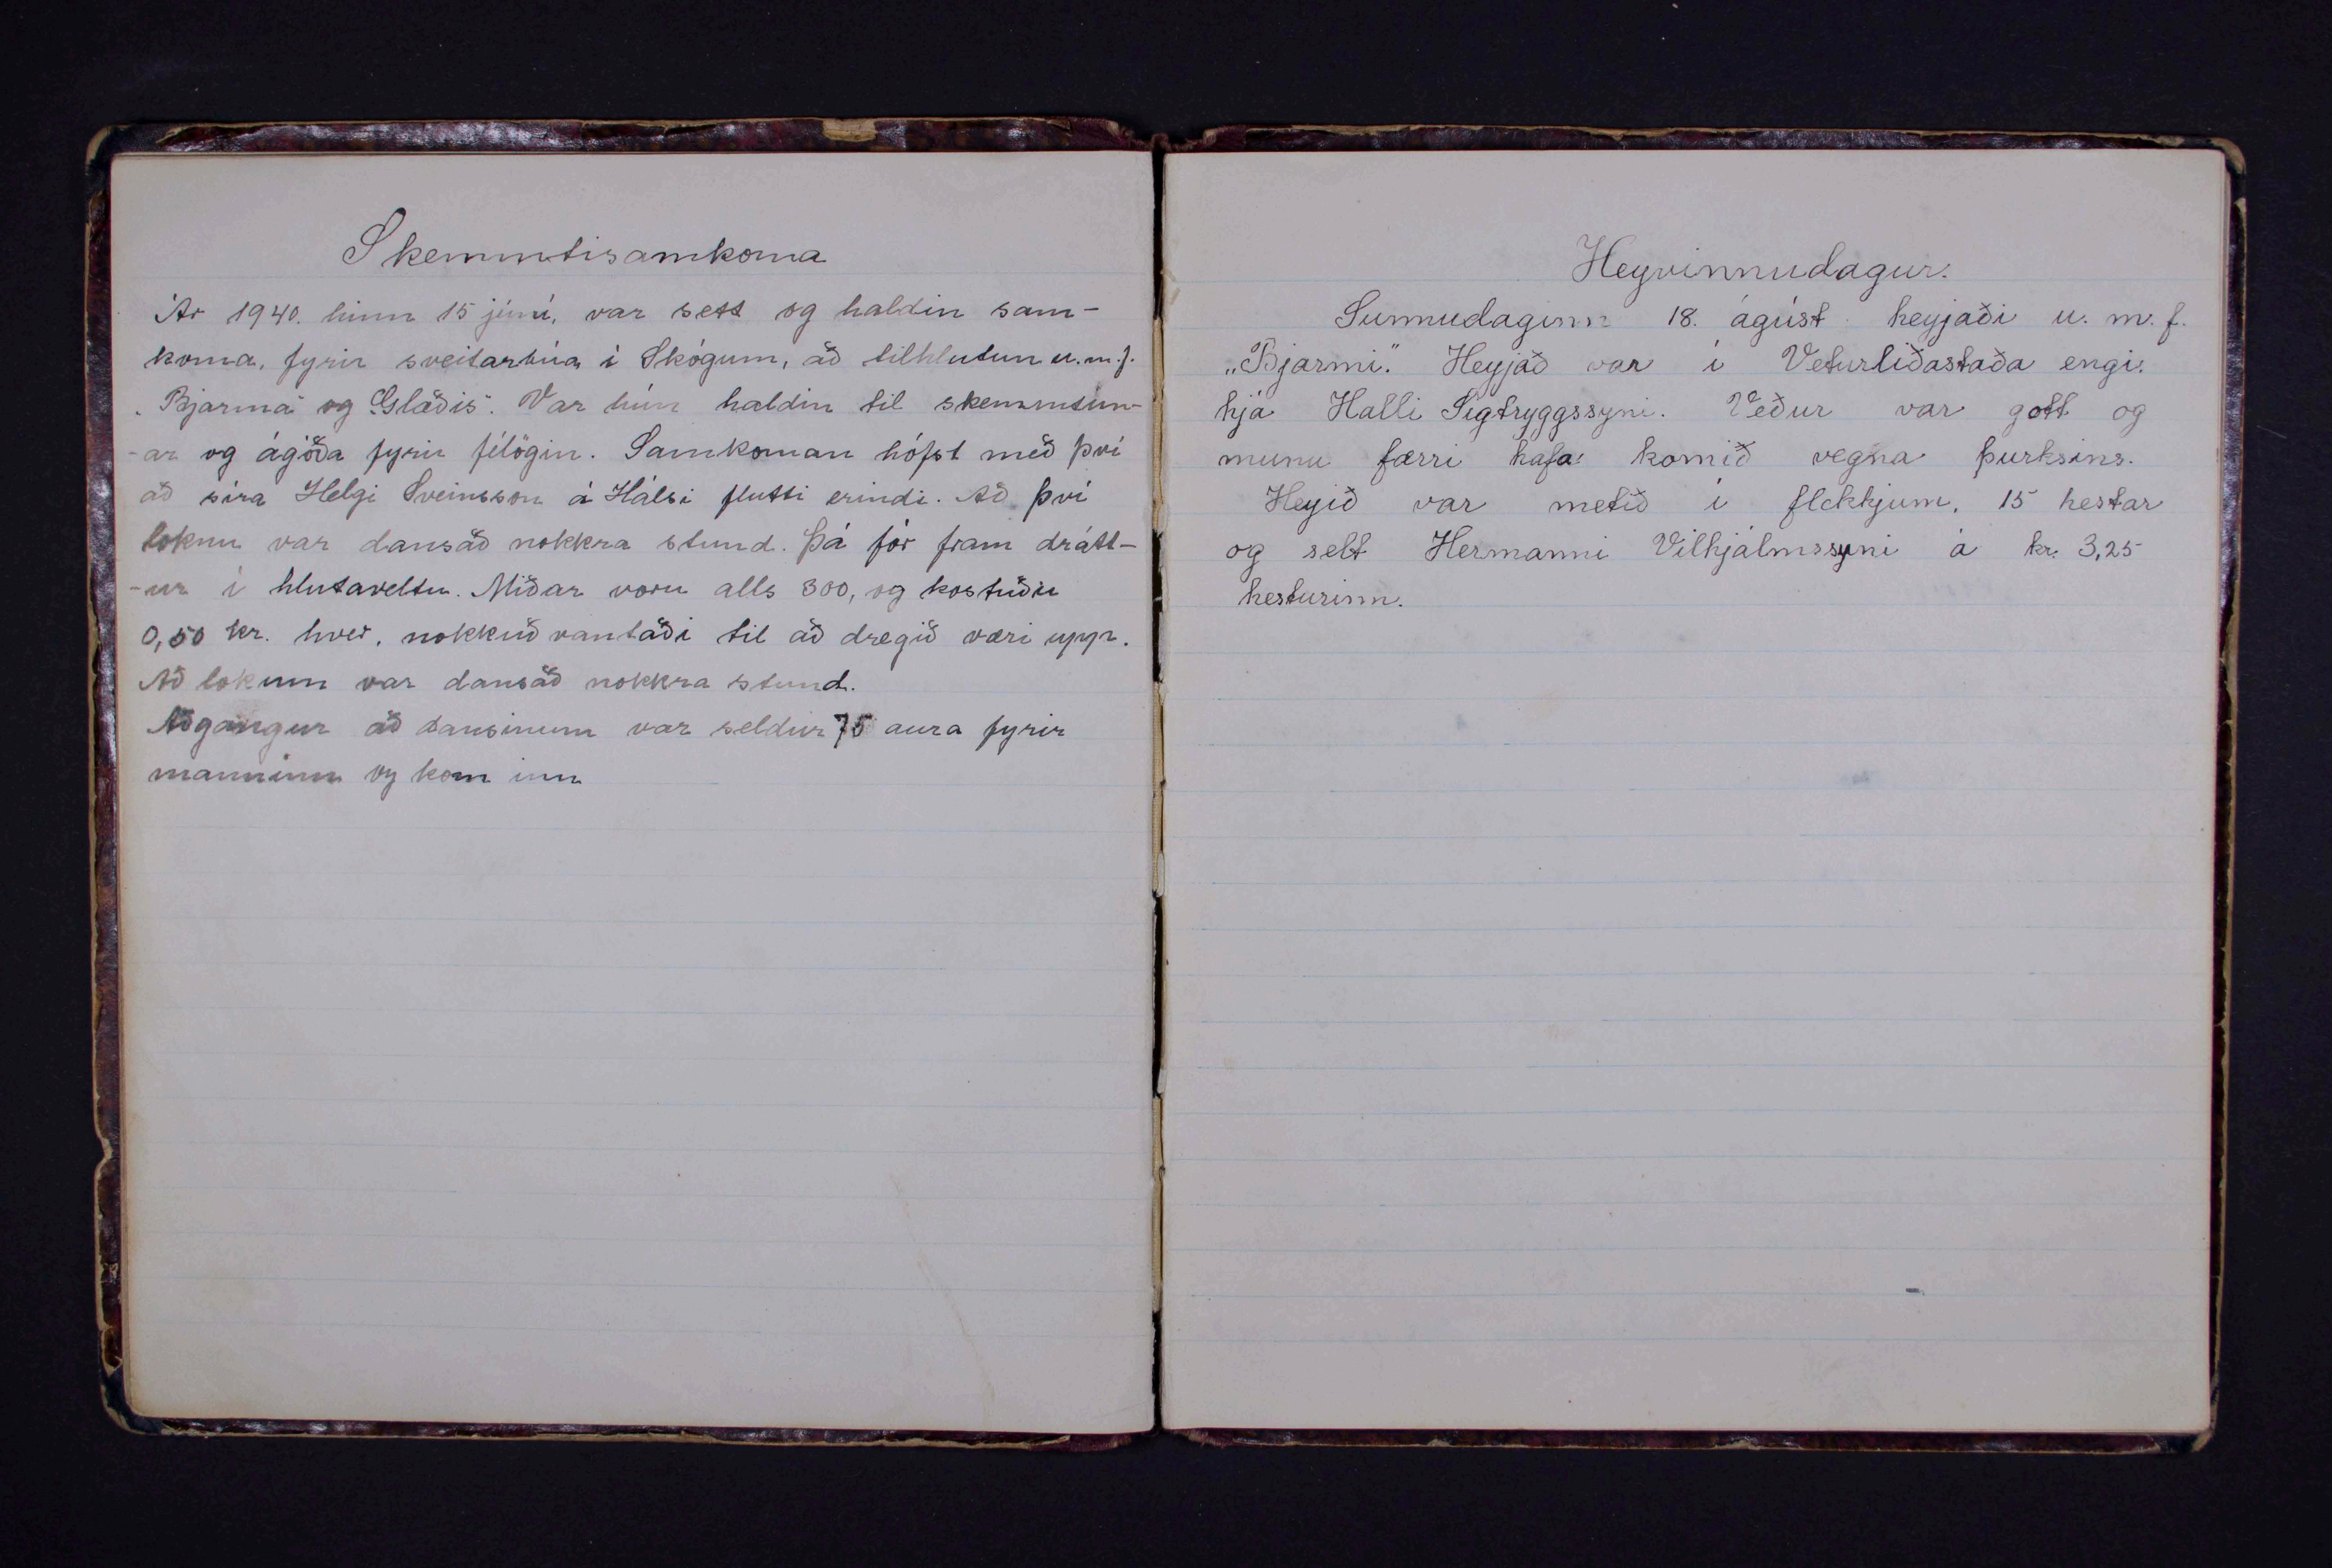 Skemmtisamkoma
Ár 1940. hinn 15 júní, var sett og haldin sam-
koma, fyrir sveitarbúa í Skógum, að tilhlutun u.m.f.
„Bjarma" og "Glæðis". Var hún haldin til skemmtun-
-ar og ágóða fyrir félögin. Samkoman hófst með því
að síra Helgi Sveinsson á Hálsi flutti erindi. Að því
loknu var dansað nokkra stund. Þá fór fram drátt-
-ur í hlutaveltu. Miðar voru alls 300, og kostuðu
0,50 kr. hver, nokkuð vantaði til að dregið væri upp.
Að lokum var dansað nokkra stund.
Aðgangur að dansinum var seldur 75 aura fyrir
manninn og kom inn
Heyvinnudagur.
Sunnudaginn 18. ágúst heyjaði u. m. f.
„Bjarmi." Heyjað var í Veturliðastaða engi.
hjá Halli Sigtryggssyni. Veður var gott og
munu færri hafa komið vegna þurksins.
Heyið var metið í flekkjum, 15 hestar
og selt Hermanni Vilhjálmssyni á kr. 3,25
hesturinn.